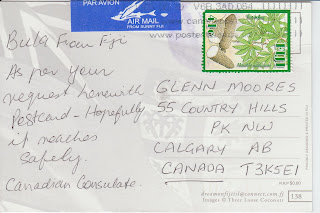 PAR AVION
AIR MAIL
FROM SUNNY FIJI
V6B 3A0 064
www.poste
Bula From Fiji
As per your
request herewith
Postcard - Hopefully
it reaches
safely.
Canadian Consulate.
GLENN MOORES
55 COUNTRY HILLS
PK NW
CALGARY AB
CANADA T3K5E1
dreamonfiji@connect.com.fj
Images © Three Loose Coconuts
138